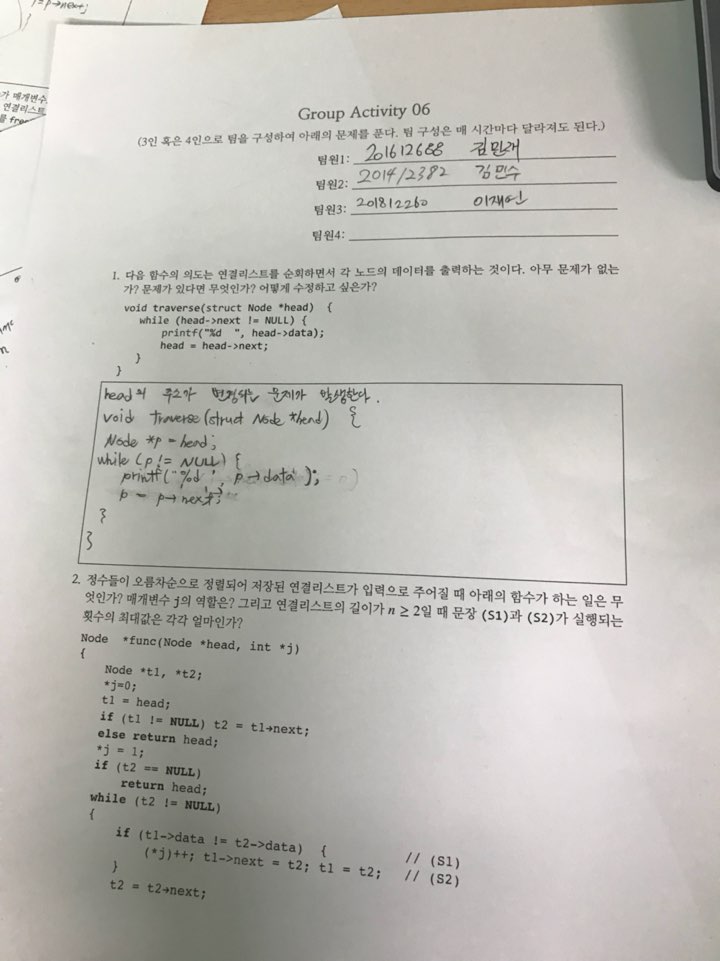 Group Activity 06
(3인 혹은 4인으로 팀을 구성하여 아래의 문제를 푼다. 팀 구성은 매 시간마다 달라져도 된다.)
팀원1: 201612688 김민재
팀원2: 201412382 김민수
팀원3: 201812260 이재연
팀원4:
1. 다음 함수의 의도는 연결리스트를 순회하면서 각 노드의 데이터를 출력하는 것이다. 아무 문제가 없는
가? 문제가 있다면 무엇인가? 어떻게 수정하고 싶은가?
void traverse(struct Node *head) {
while (head->next != NULL) {
printf("%d ", head->data);
head = head->next;
}
}
head의 주소가 변경되는 문제가 발생한다.
void traverse(struct Node *head) {
Node *p = head;
while (p != NULL) {
printf("%d ", p->data);
p = p->next;
}
}
2. 정수들이 오름차순으로 정렬되어 저장된 연결리스트가 입력으로 주어질 때 아래의 함수가 하는 일은 무
엇인가? 매개변수 j의 역할은? 그리고 연결리스트의 길이가 n ≥ 2일 때 문장 (S1)과 (S2)가 실행되는
횟수의 최대값은 각각 얼마인가?
Node *func(Node *head, int *j)
{
Node *t1, *t2;
*j=0;
t1 = head;
if (t1 != NULL) t2 = t1->next;
else return head;
*j = 1;
if (t2 == NULL)
return head;
while (t2 != NULL)
{
if (t1->data != t2->data) { // (S1)
(*j)++; t1->next = t2; t1 = t2; // (S2)
}
t2 = t2->next;